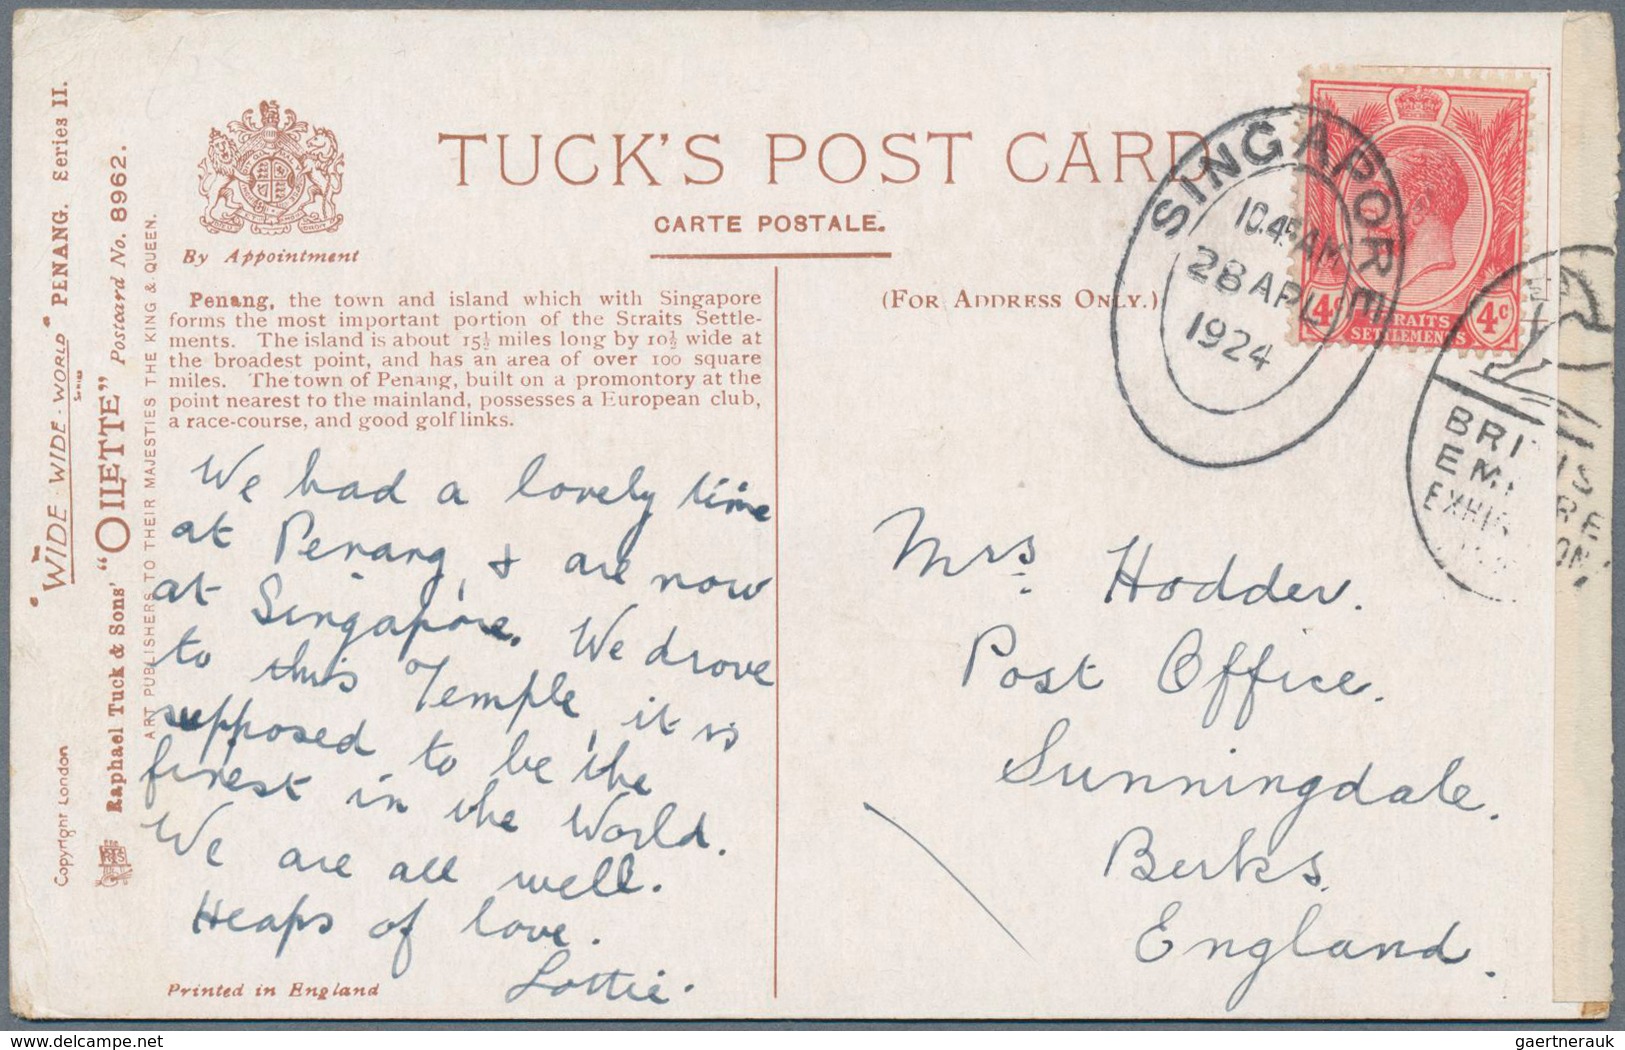 TUCK'S POST CARD
CARTE POSTALE.
By Appointment
(FOR ADDRESS ONLY.)
Penang, the town and island which with Singapore
forms the most important portion of the Straits Settle-
ments. The island is about 15½ miles long by 10½ wide at
the broadest point, and has an area of over 100 square
miles. The town of Penang, built on a promontory at the
point nearest to the mainland, possesses a European club,
a race-course, and good golf links.
We had a lovely time
at Penang, & are now
at Singapore. We drove
to this Temple, it is
supposed to be the
finest in the World.
We are all well.
Heaps of love.
Lottie.
Printed in England
"WIDE-WIDE-WORLD" PENANG. Series II.
SERIES
Raphael Tuck & Sons' "OILETTE" Postcard No. 8962.
ART PUBLISHERS TO THEIR MAJESTIES THE KING & QUEEN.
Copyright London
SINGAPORE
10.45AM
28 APL
1924
4c 4c
STRAITS
SETTLEMENTS
BRITIS
EM RE
EXHI ON
Mrs. Hodder.
Post Office.
Sunningdale.
Berks.
England.
gaertnerauk